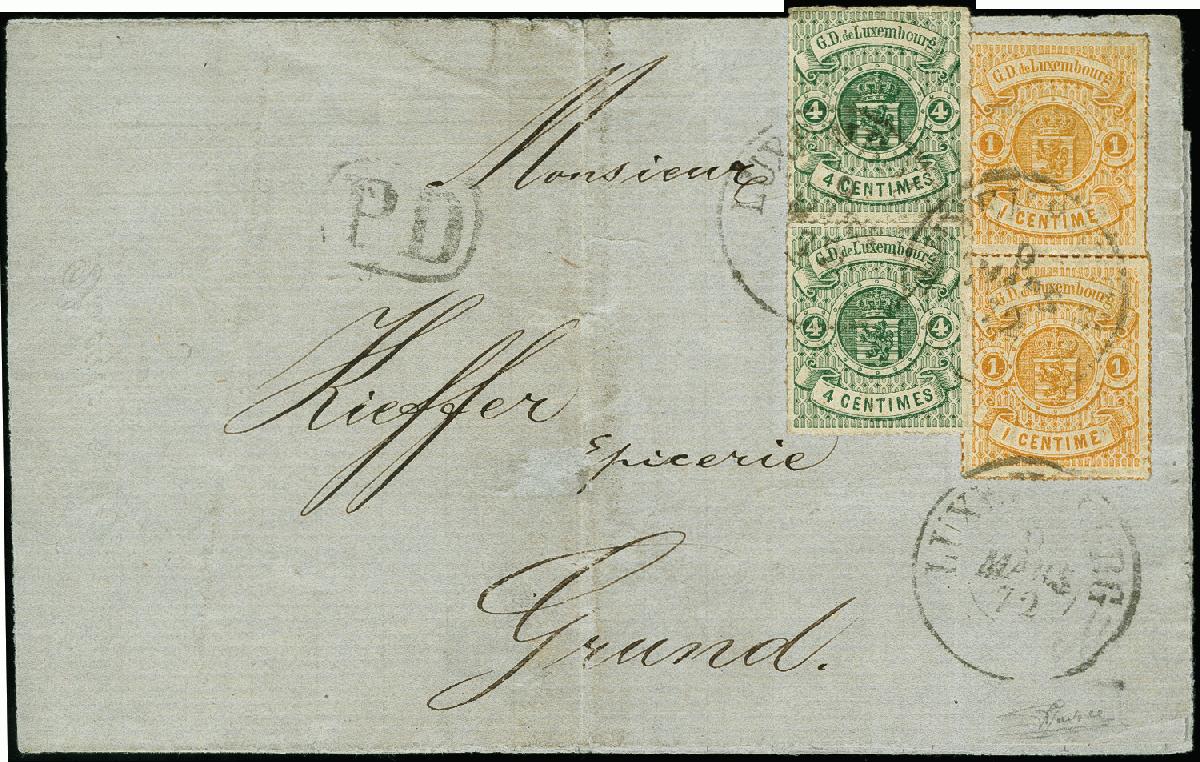 G.D. de Luxembourg
4 4
4 CENTIMES
G.D. de Luxembourg
4 4
4 CENTIMES
G.D. de Luxembourg
1 1
1 CENTIME
G.D. de Luxembourg
1 1
1 CENTIME
Monsieur
P.D
Kieffer
Epicerie
Grund.
LUXEMBOURG
MARS
72